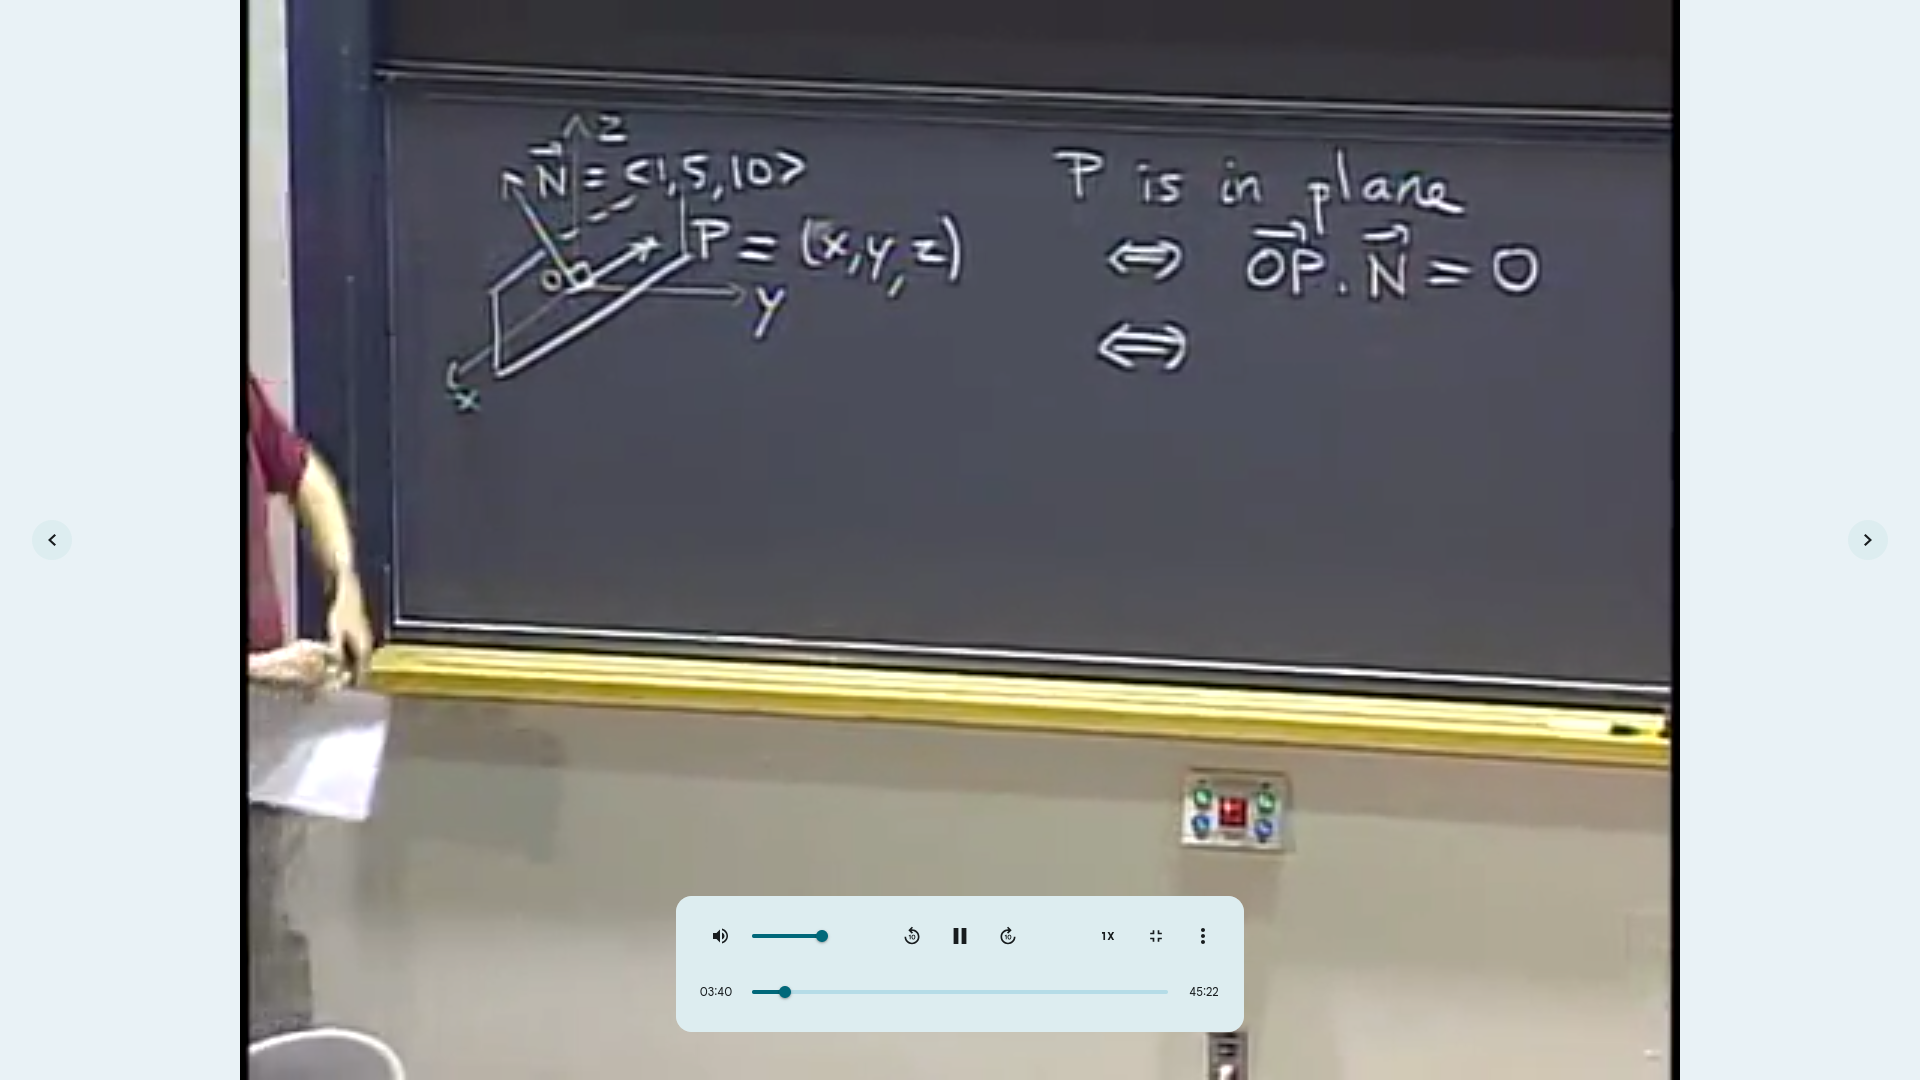 z
N⃗ = <1,5,10>
P = (x,y,z)
O
y
x
P is in plane
⇔ O⃗P⃗ . N⃗ = 0
⇔
10
10
1X
03:40
45:22